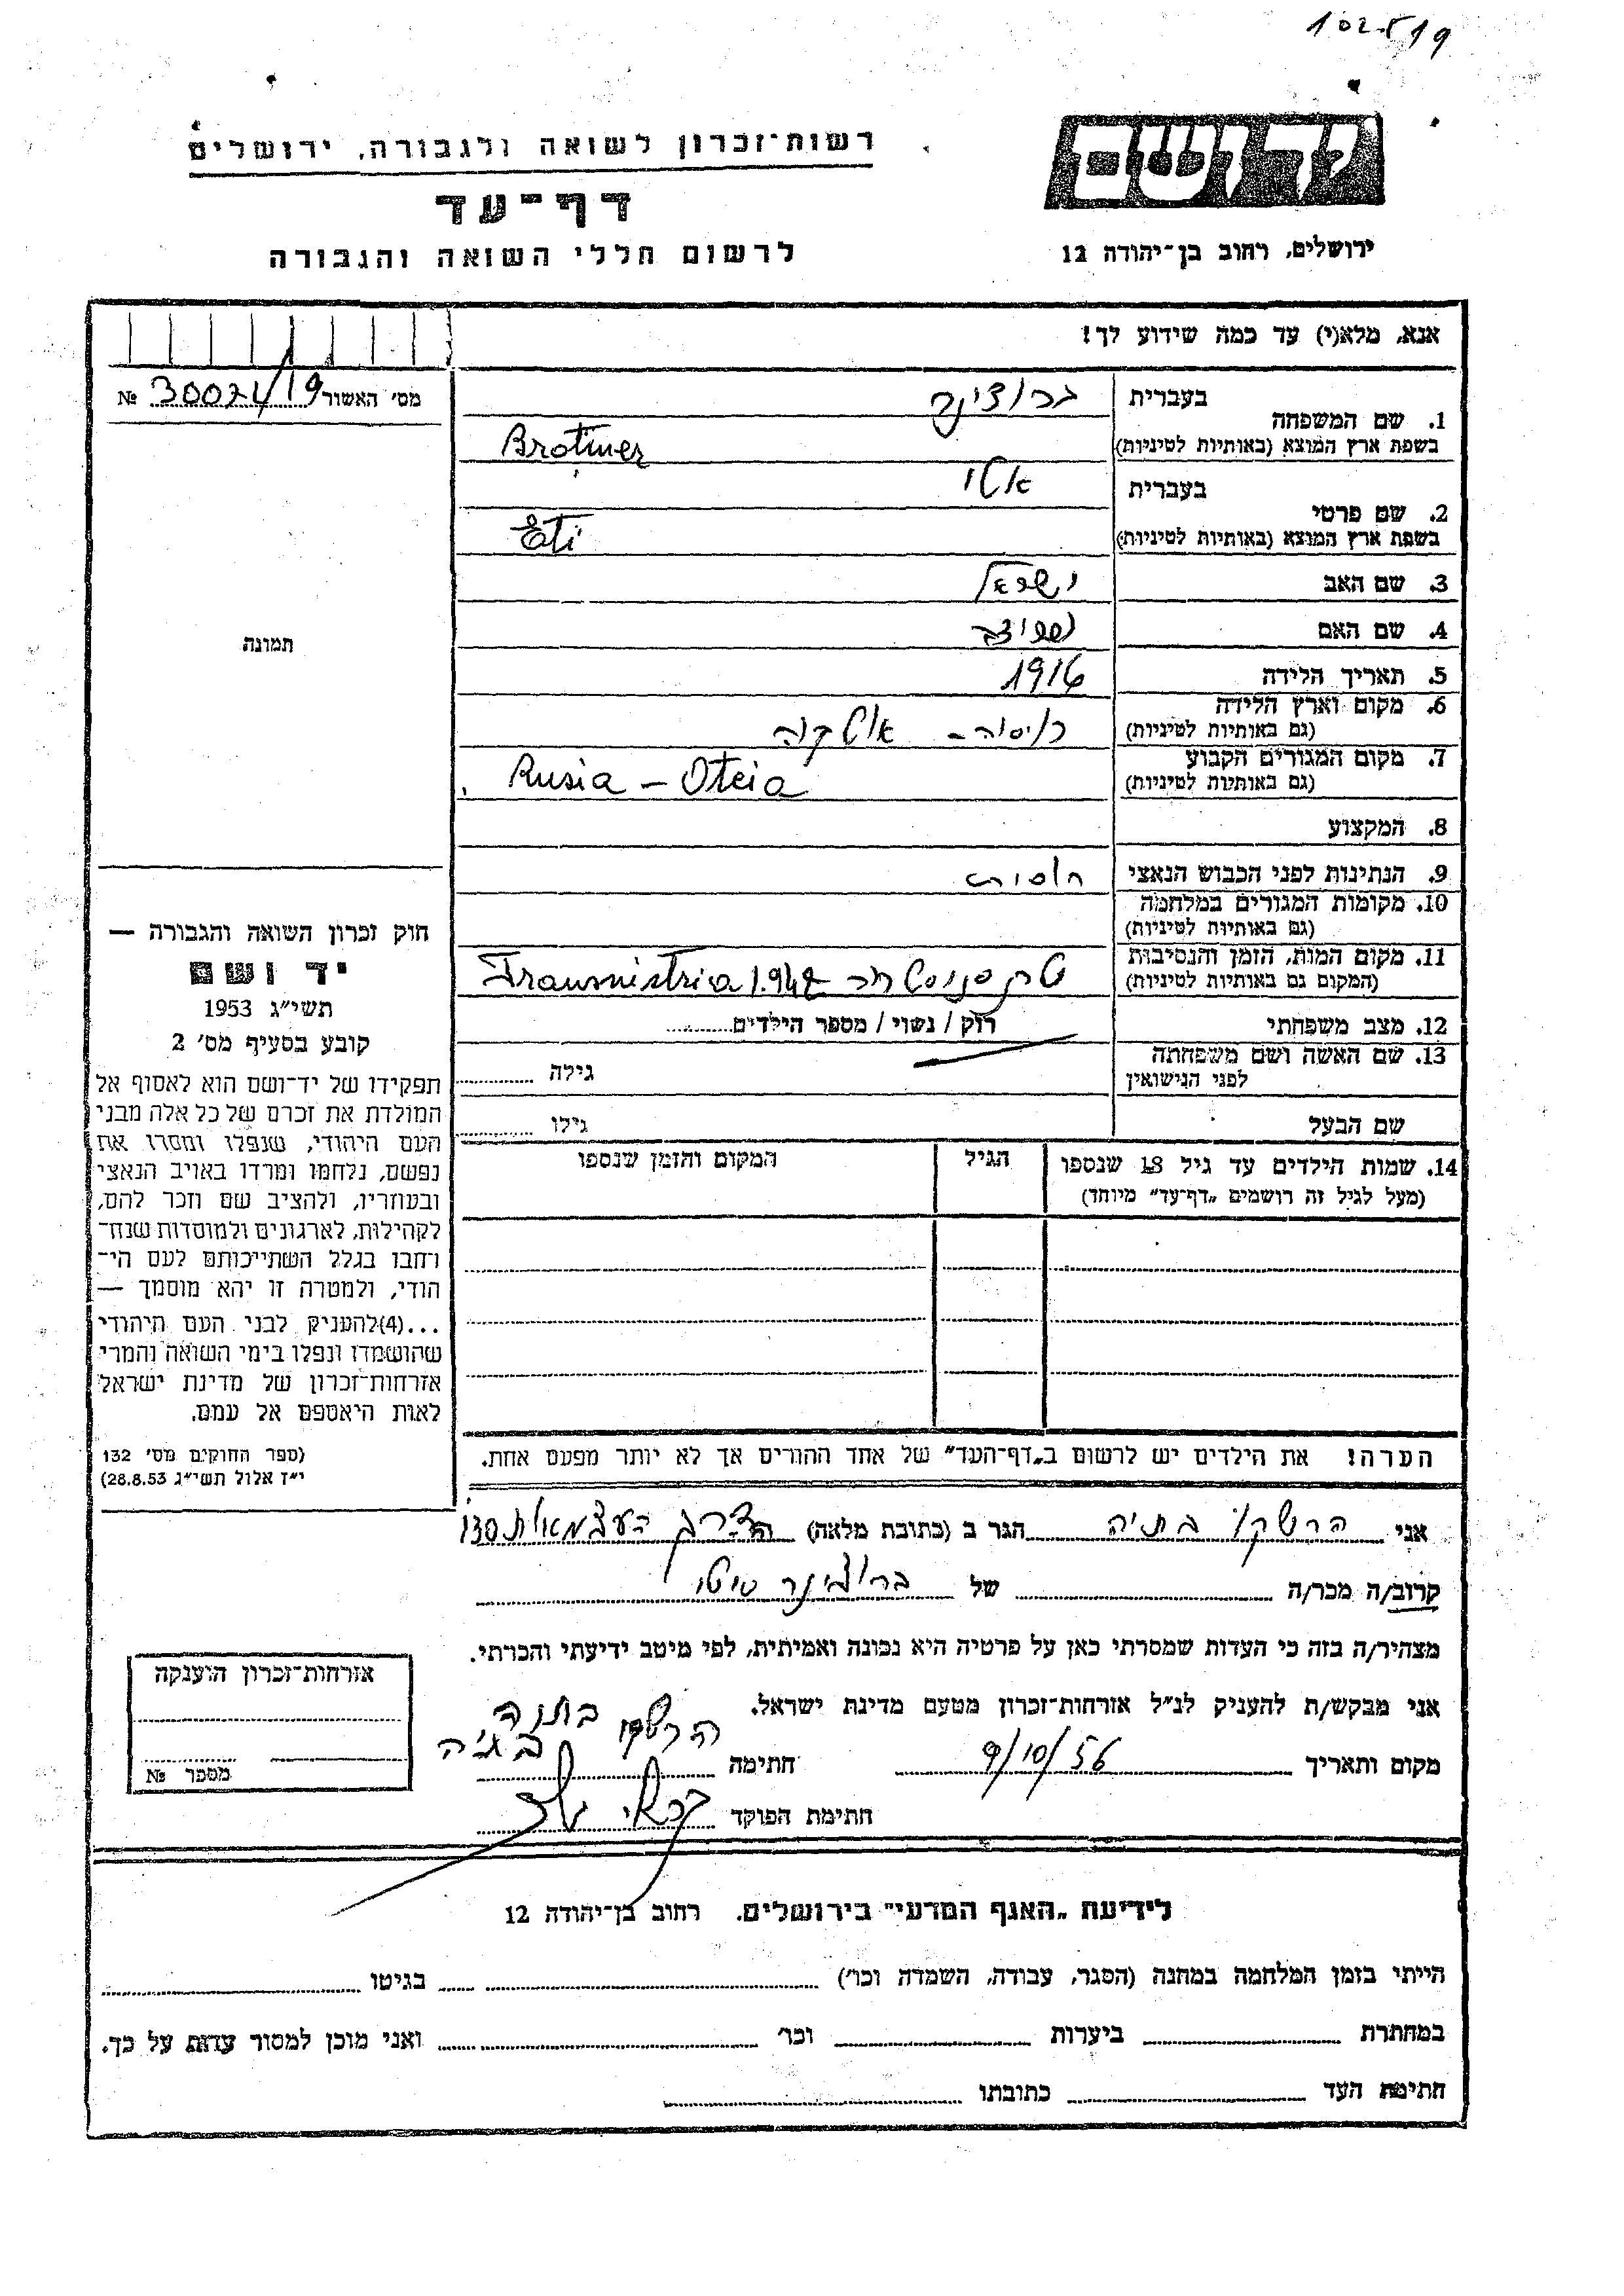 רשות־זכרון לשואה ולגבורה, ירושלים
ידושם
דף־עד
לרשום חללי השואה והגבורה
ירושלים, רחוב בן־יהודה 12
אנא, מלא(י) עד כמה שידוע לך!
מס׳ האשור 30024/19 №
1. שם המשפחה
בעברית
בשפת ארץ המוצא (באותיות לטיניות) Brotiner
2. שם פרטי
בעברית אטי
בשפת ארץ המוצא (באותיות לטיניות) Eti
3. שם האב ישראל
4. שם האם
5. תאריך הלידה 1916
6. מקום וארץ הלידה
(גם באותיות לטיניות)
7. מקום המגורים הקבוע
(גם באותיות לטיניות) Rusia –
8. המקצוע
9. הנתינות לפני הכבוש הנאצי
10. מקומות המגורים במלחמה
(גם באותיות לטיניות)
11. מקום המות, הזמן והנסיבות
(המקום גם באותיות לטיניות) Transnistria טרנסניסטריה
12. מצב משפחתי רוק / נשוי / מספר הילדים
13. שם האשה ושם משפחתה
לפני הנישואין גילה
שם הבעל גילו
14. שמות הילדים עד גיל 18 שנספו
(מעל לגיל זה רושמים „דף־עד״ מיוחד)
הגיל
המקום והזמן שנספו
הערה! את הילדים יש לרשום ב„דף־העד״ של אחד ההורים אך לא יותר מפעם אחת.
תמונה
חוק זכרון השואה והגבורה —
יד ושם
תשי״ג 1953
קובע בסעיף מס׳ 2
תפקידו של יד־ושם הוא לאסוף אל
המולדת את זכרם של כל אלה מבני
העם היהודי, שנפלו ומסרו את
נפשם, נלחמו ומרדו באויב הנאצי
ובעוזריו, ולהציב שם וזכר להם,
לקהילות, לארגונים ולמוסדות שנח־
רחבו בגלל השתייכותם לעם הי־
הודי, ולמטרה זו יהא מוסמך —
...(4)להעניק לבני העם היהודי
שהושמדו ונפלו בימי השואה והמרי
אזרחות־זכרון של מדינת ישראל
לאות היאספם אל עמם.
(ספר החוקים מס׳ 132
י״ז אלול תשי״ג 28.8.53)
אני הרשקו בתיה הגר ב (כתובת מלאה) דרך העצמאות 130
קרוב/ה מכר/ה של
מצהיר/ה בזה כי העדות שמסרתי כאן על פרטיה היא נכונה ואמיתית, לפי מיטב ידיעתי והכרתי.
אני מבקש/ת להעניק לנ״ל אזרחות־זכרון מטעם מדינת ישראל.
מקום ותאריך 9/10/56 חתימה הרשקו בתיה
חתימת הפוקד
אזרחות־זכרון הוענקה
מספר №
לידיעת „האגף המדעי״ בירושלים. רחוב בן־יהודה 12
הייתי בזמן המלחמה במחנה (הסגר, עבודה, השמדה וכו׳) בגיטו
במחתרת ביערות וכו׳ ואני מוכן למסור עדות על כך.
חתימת העד כתובתו